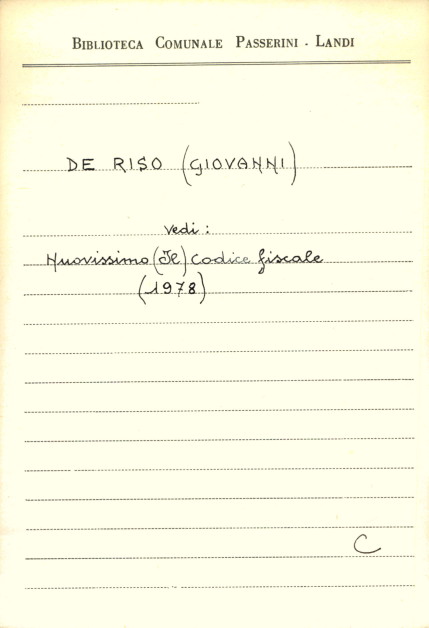 BIBLIOTECA COMUNALE PASSERINI - LANDI
DE RISO (GIOVANNI)
Vedi:
Nuovissimo (Il) Codice fiscale
(1978)
C